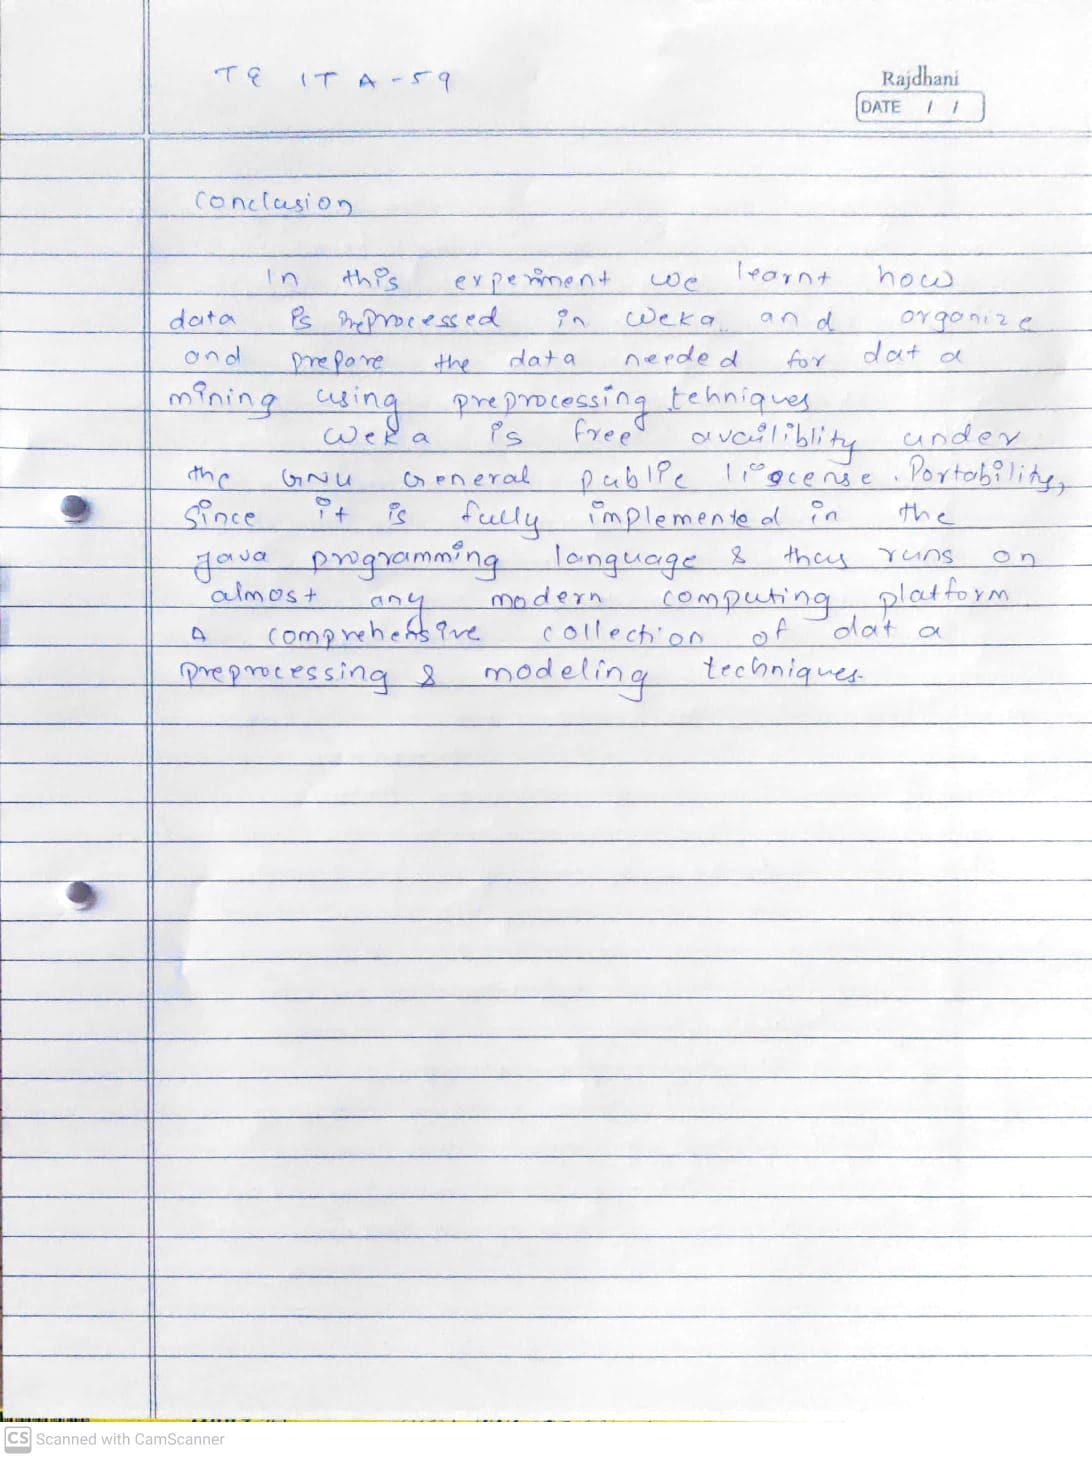 TE IT A-59
Rajdhani
DATE / /
Conclusion
In this experiment we learnt how
data is preprocessed in weka and organize
and prepare the data needed for data
mining using preprocessing tehniques
weka is free availiblity under
the GNU General public liscense. Portability,
Since it is fully implemented in the
java programming language & thus runs on
almost any modern computing platform
A comprehensive collection of data
preprocessing & modeling techniques.
CS Scanned with CamScanner